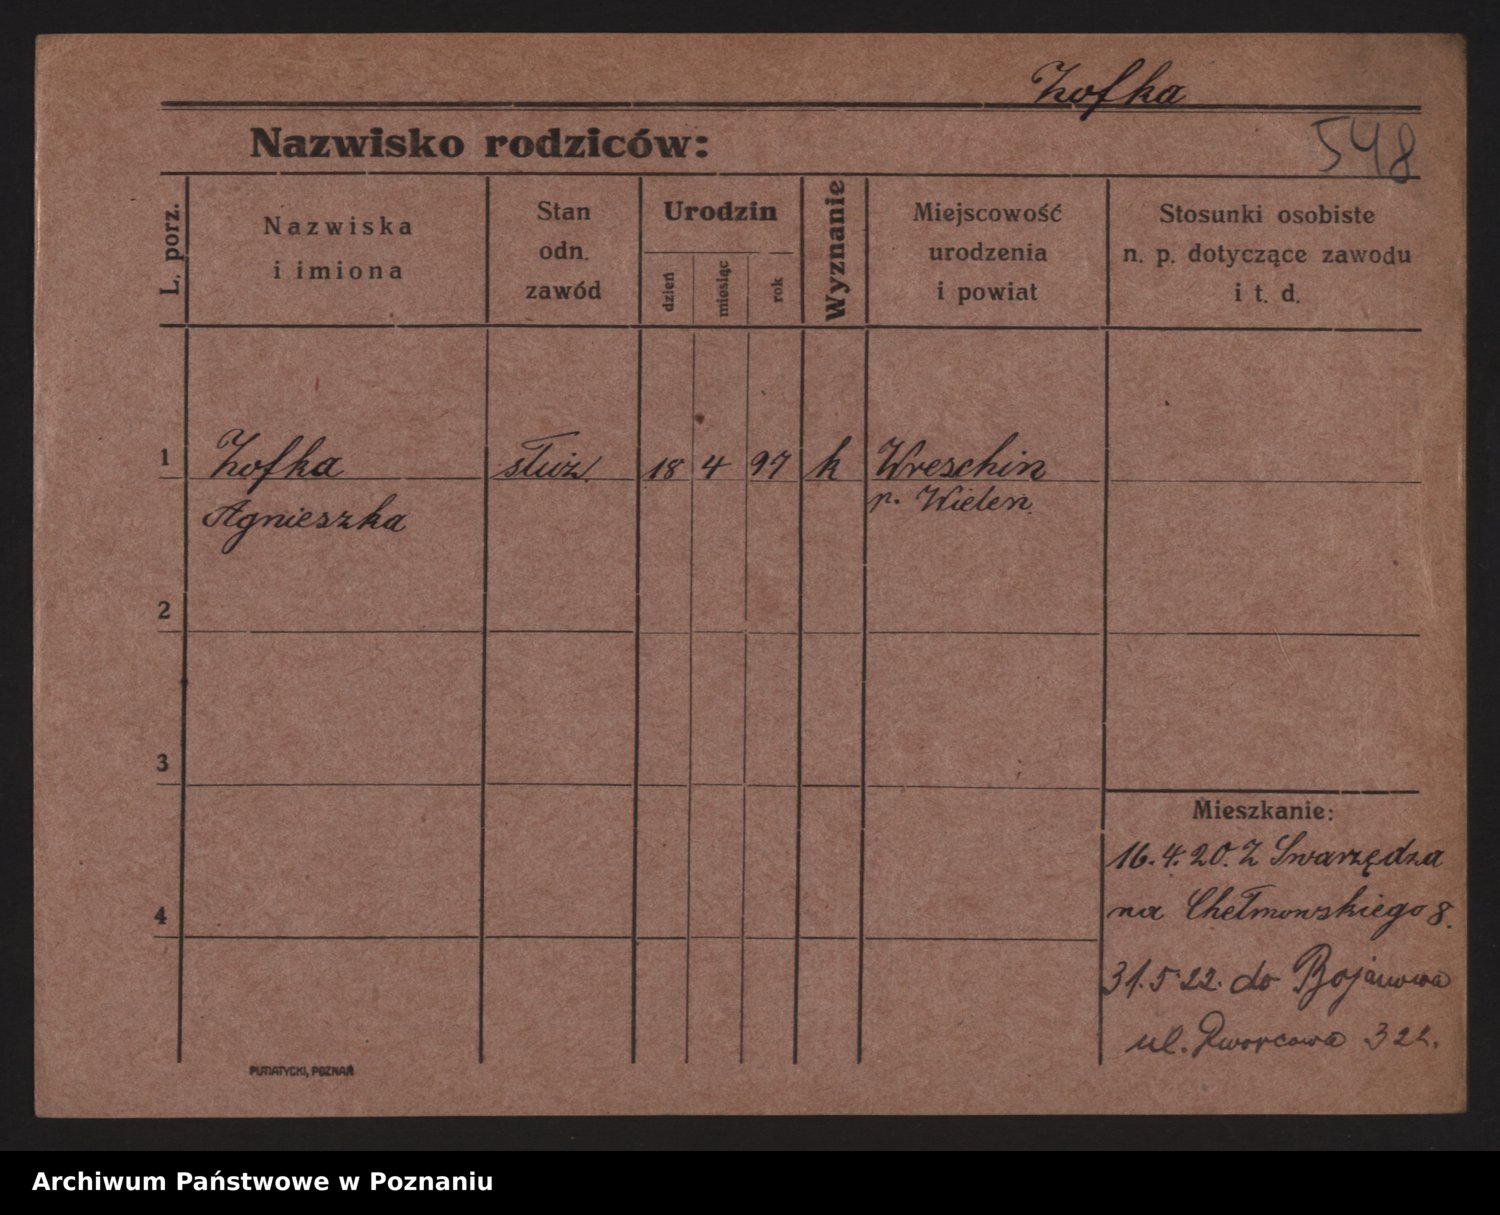 Zofka
Nazwisko rodziców:
548
L. porz.
Nazwiska
i imiona
Stan
odn.
zawód
Urodzin
dzień
miesiąc
rok
Wyznanie
Miejscowość
urodzenia
i powiat
Stosunki osobiste
n. p. dotyczące zawodu
i t. d.
1
Zofka
służ.
18
4
97
k
Wreschin
p. Wieleń
Agnieszka
2
3
4
Mieszkanie:
16.4.20. Z Swarzędza
na Chełmońskiego 8.
31.5 22. do Bojanowa
ul. Dworcowa 322.
PUTIATYCKI, POZNAŃ
Archiwum Państwowe w Poznaniu